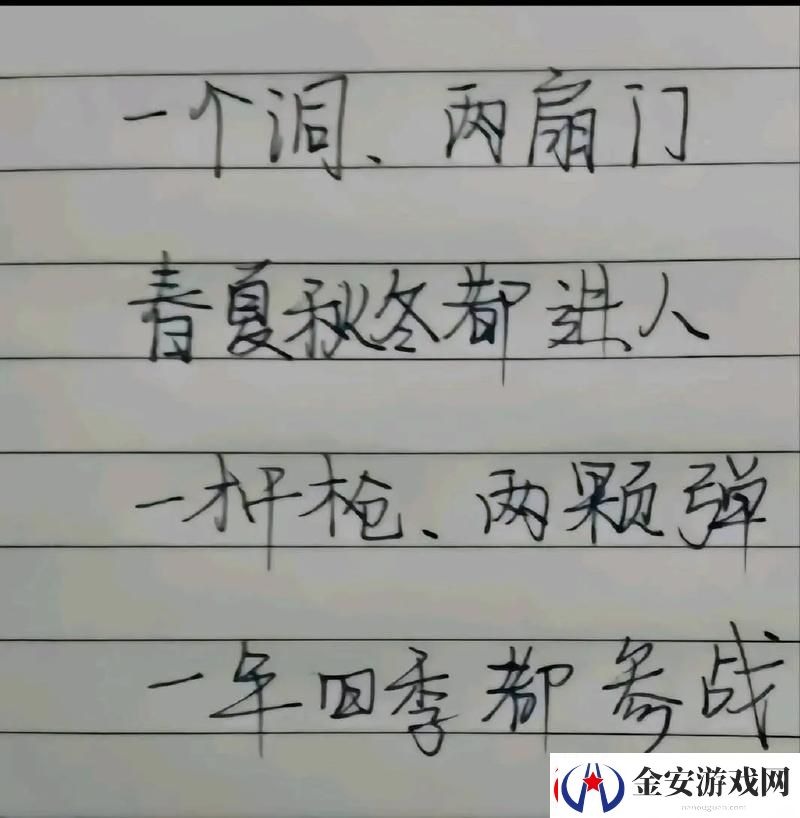 一个洞、两扇门
春夏秋冬都进人
一杆枪、两颗弹
一年四季都参战
金安游戏网